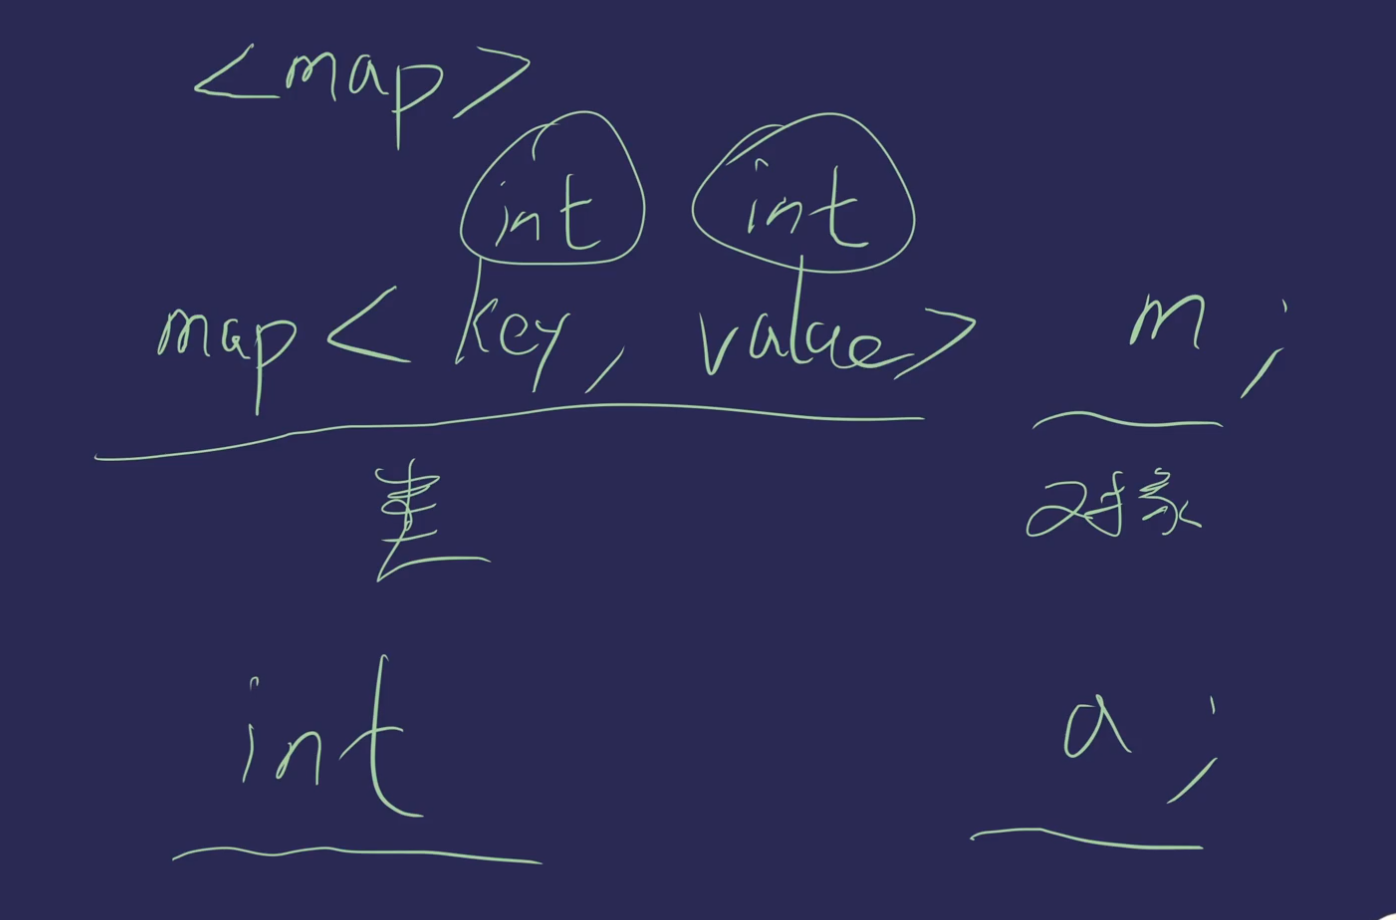 <map>
int int
map<key, value> m;
对象
int a;